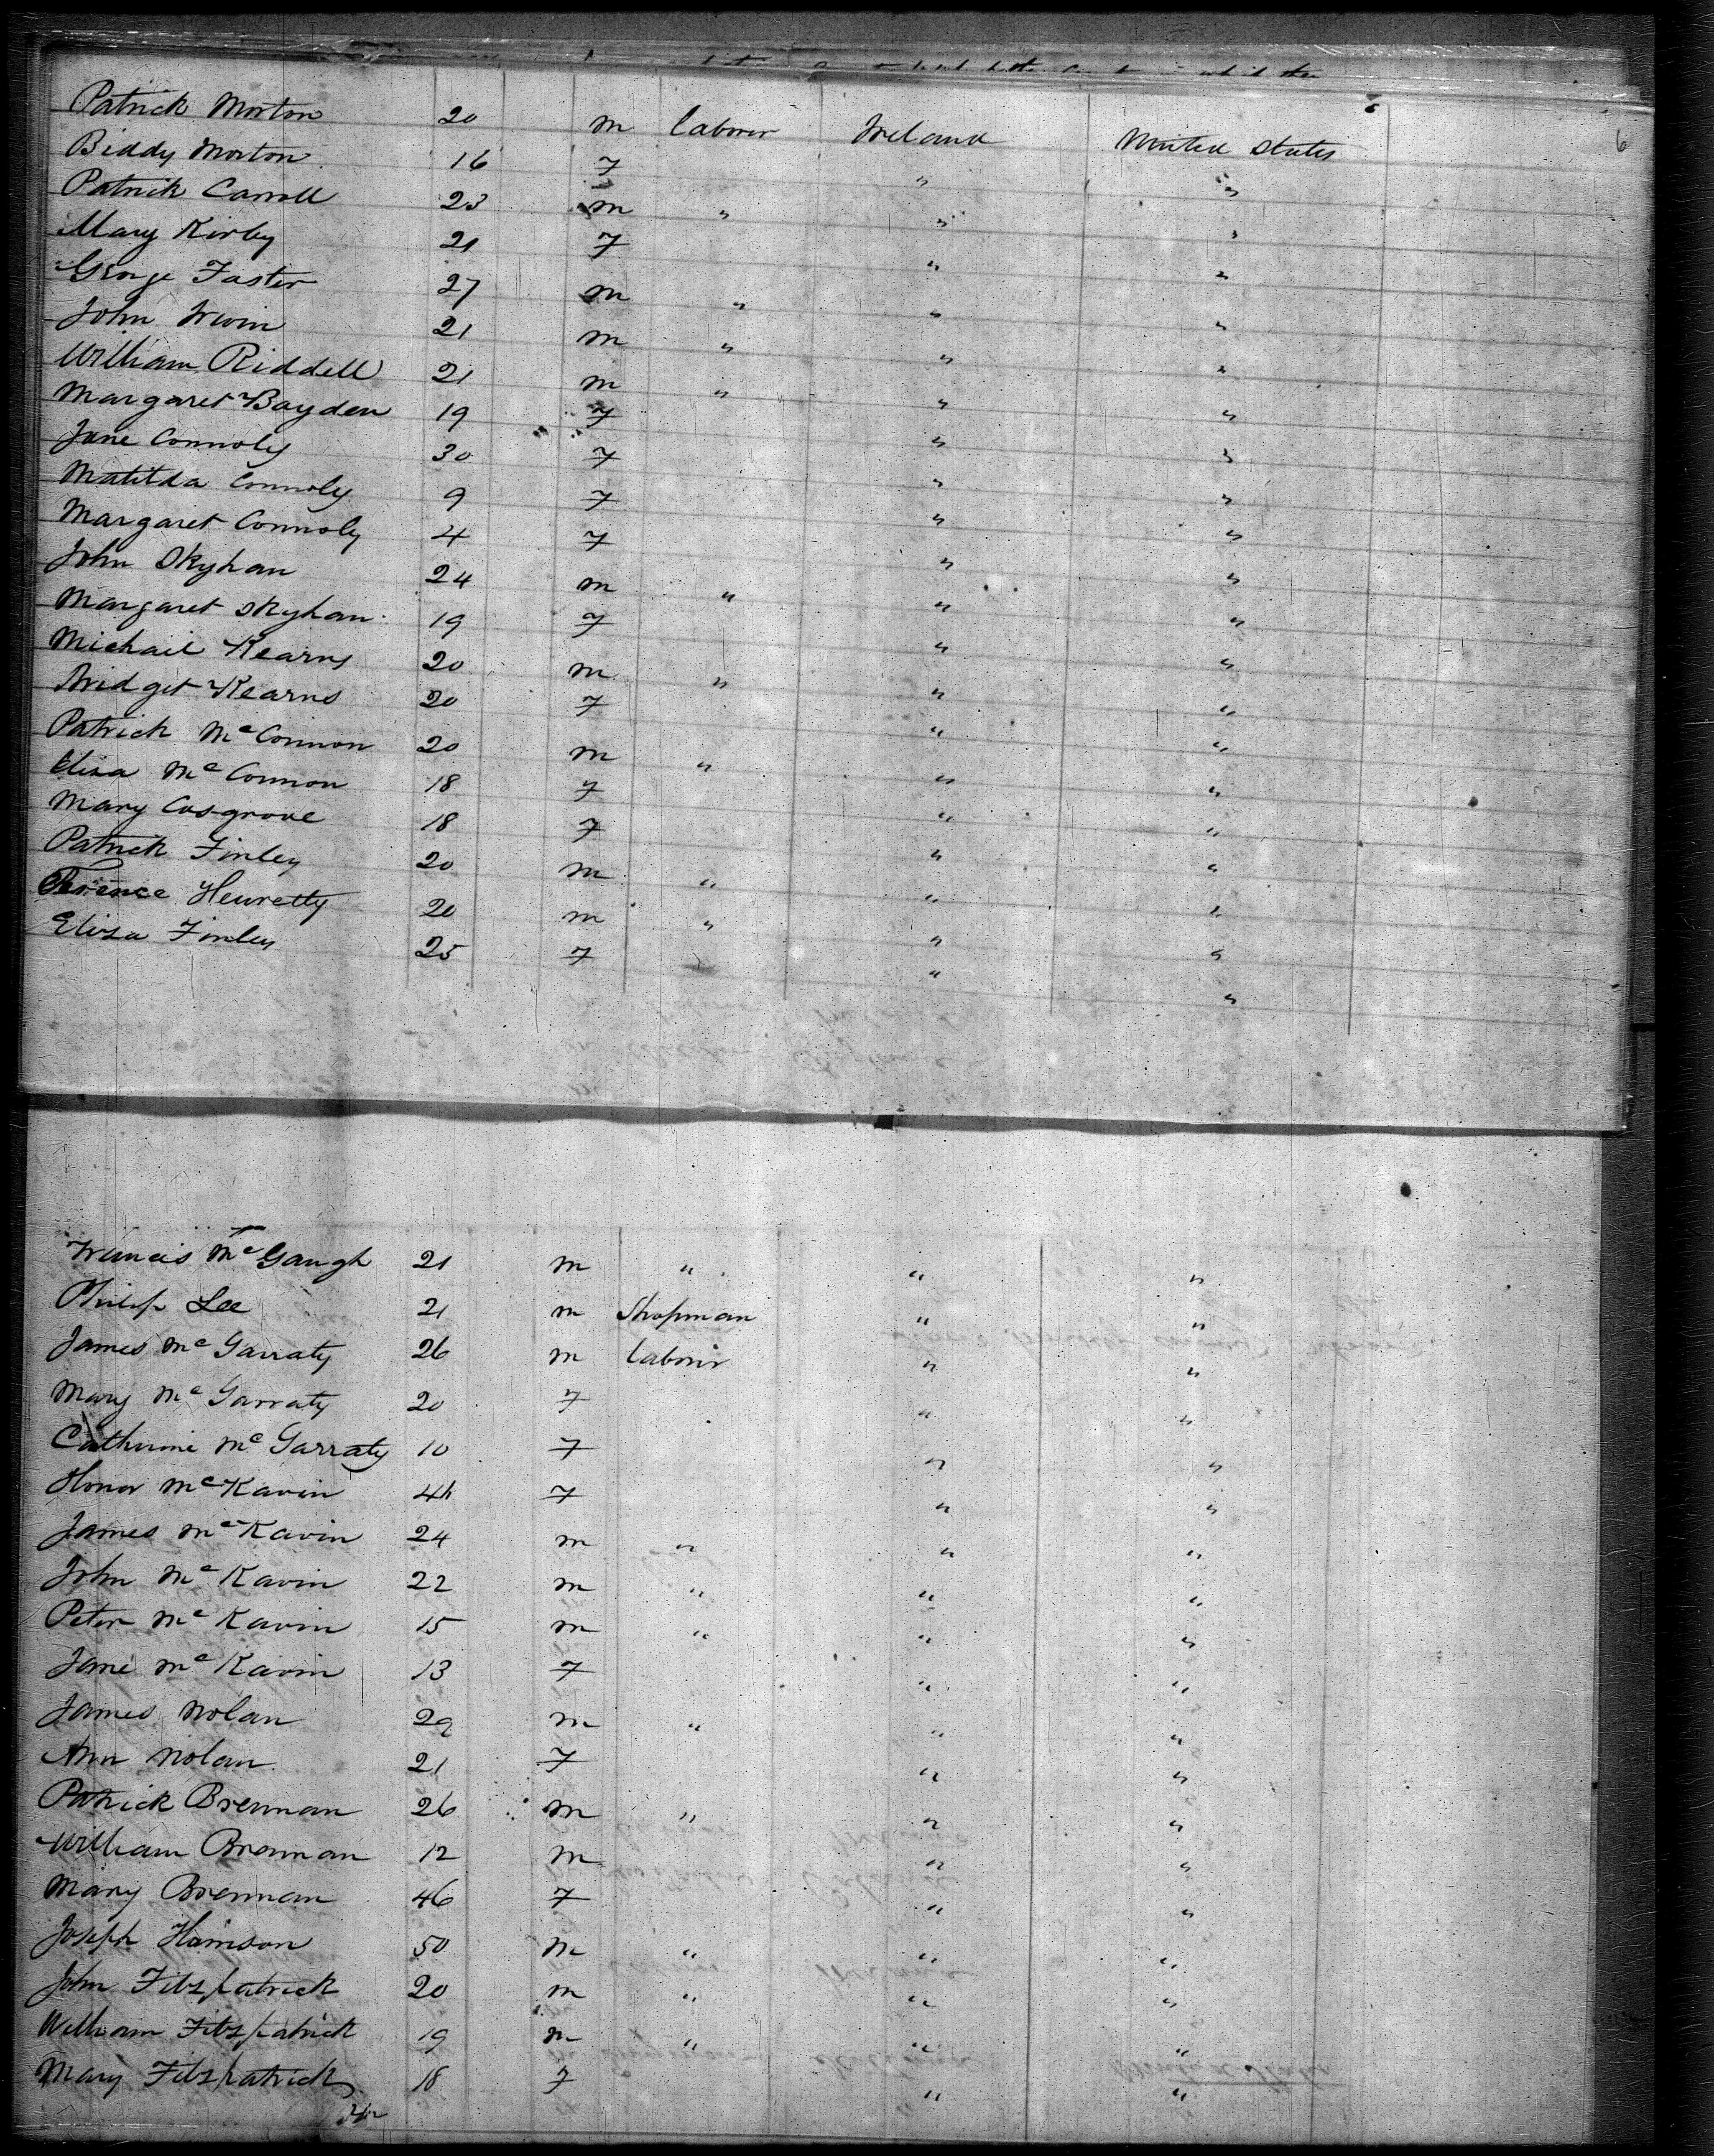 Patrick Morton 20 m Laborer Ireland United States 6
Biddy Morton 16 f " "
Patrick Carroll 23 m " " "
Mary Kirby 21 f " "
George Faster 27 m " " "
John Irwin 21 m " " "
William Riddell 21 m " " "
Margaret Boyden 19 f " "
Jane Connoly 30 f " "
Matilda Connoly 9 f " "
Margaret Connoly 4 f " "
John Skyhan 24 m " " "
Margaret Skyhan 19 f " "
Michail Kearns 20 m " " "
Bridget Kearns 20 f " "
Patrick McConnon 20 m " " "
Eliza McConnon 18 f " "
Mary Cosgrove 18 f " "
Patrick Finley 20 m " " "
Terence Heuretty 20 m " " "
Eliza Finley 25 f " "
Francis McGaugh 21 m " " "
Philip Lee 21 m Shopman " "
James McGarraty 26 m Laborir " "
Mary McGarraty 20 f " "
Catherine McGarraty 10 f " "
Honor McKavin f " "
James McKavin 24 m " " "
John McKavin 22 m " " "
Peter McKavin 15 m " " "
Jane McKavin 13 f " "
James Nolan 29 m " " "
Ann Nolan 21 f " "
Patrick Brennan 26 m " " "
William Brennan 12 m " "
Mary Brennan 46 f " "
Joseph 50 m " " "
John Fitzpatrick 20 m " " "
William Fitzpatrick 19 m " " "
Mary Fitzpatrick 18 f " "